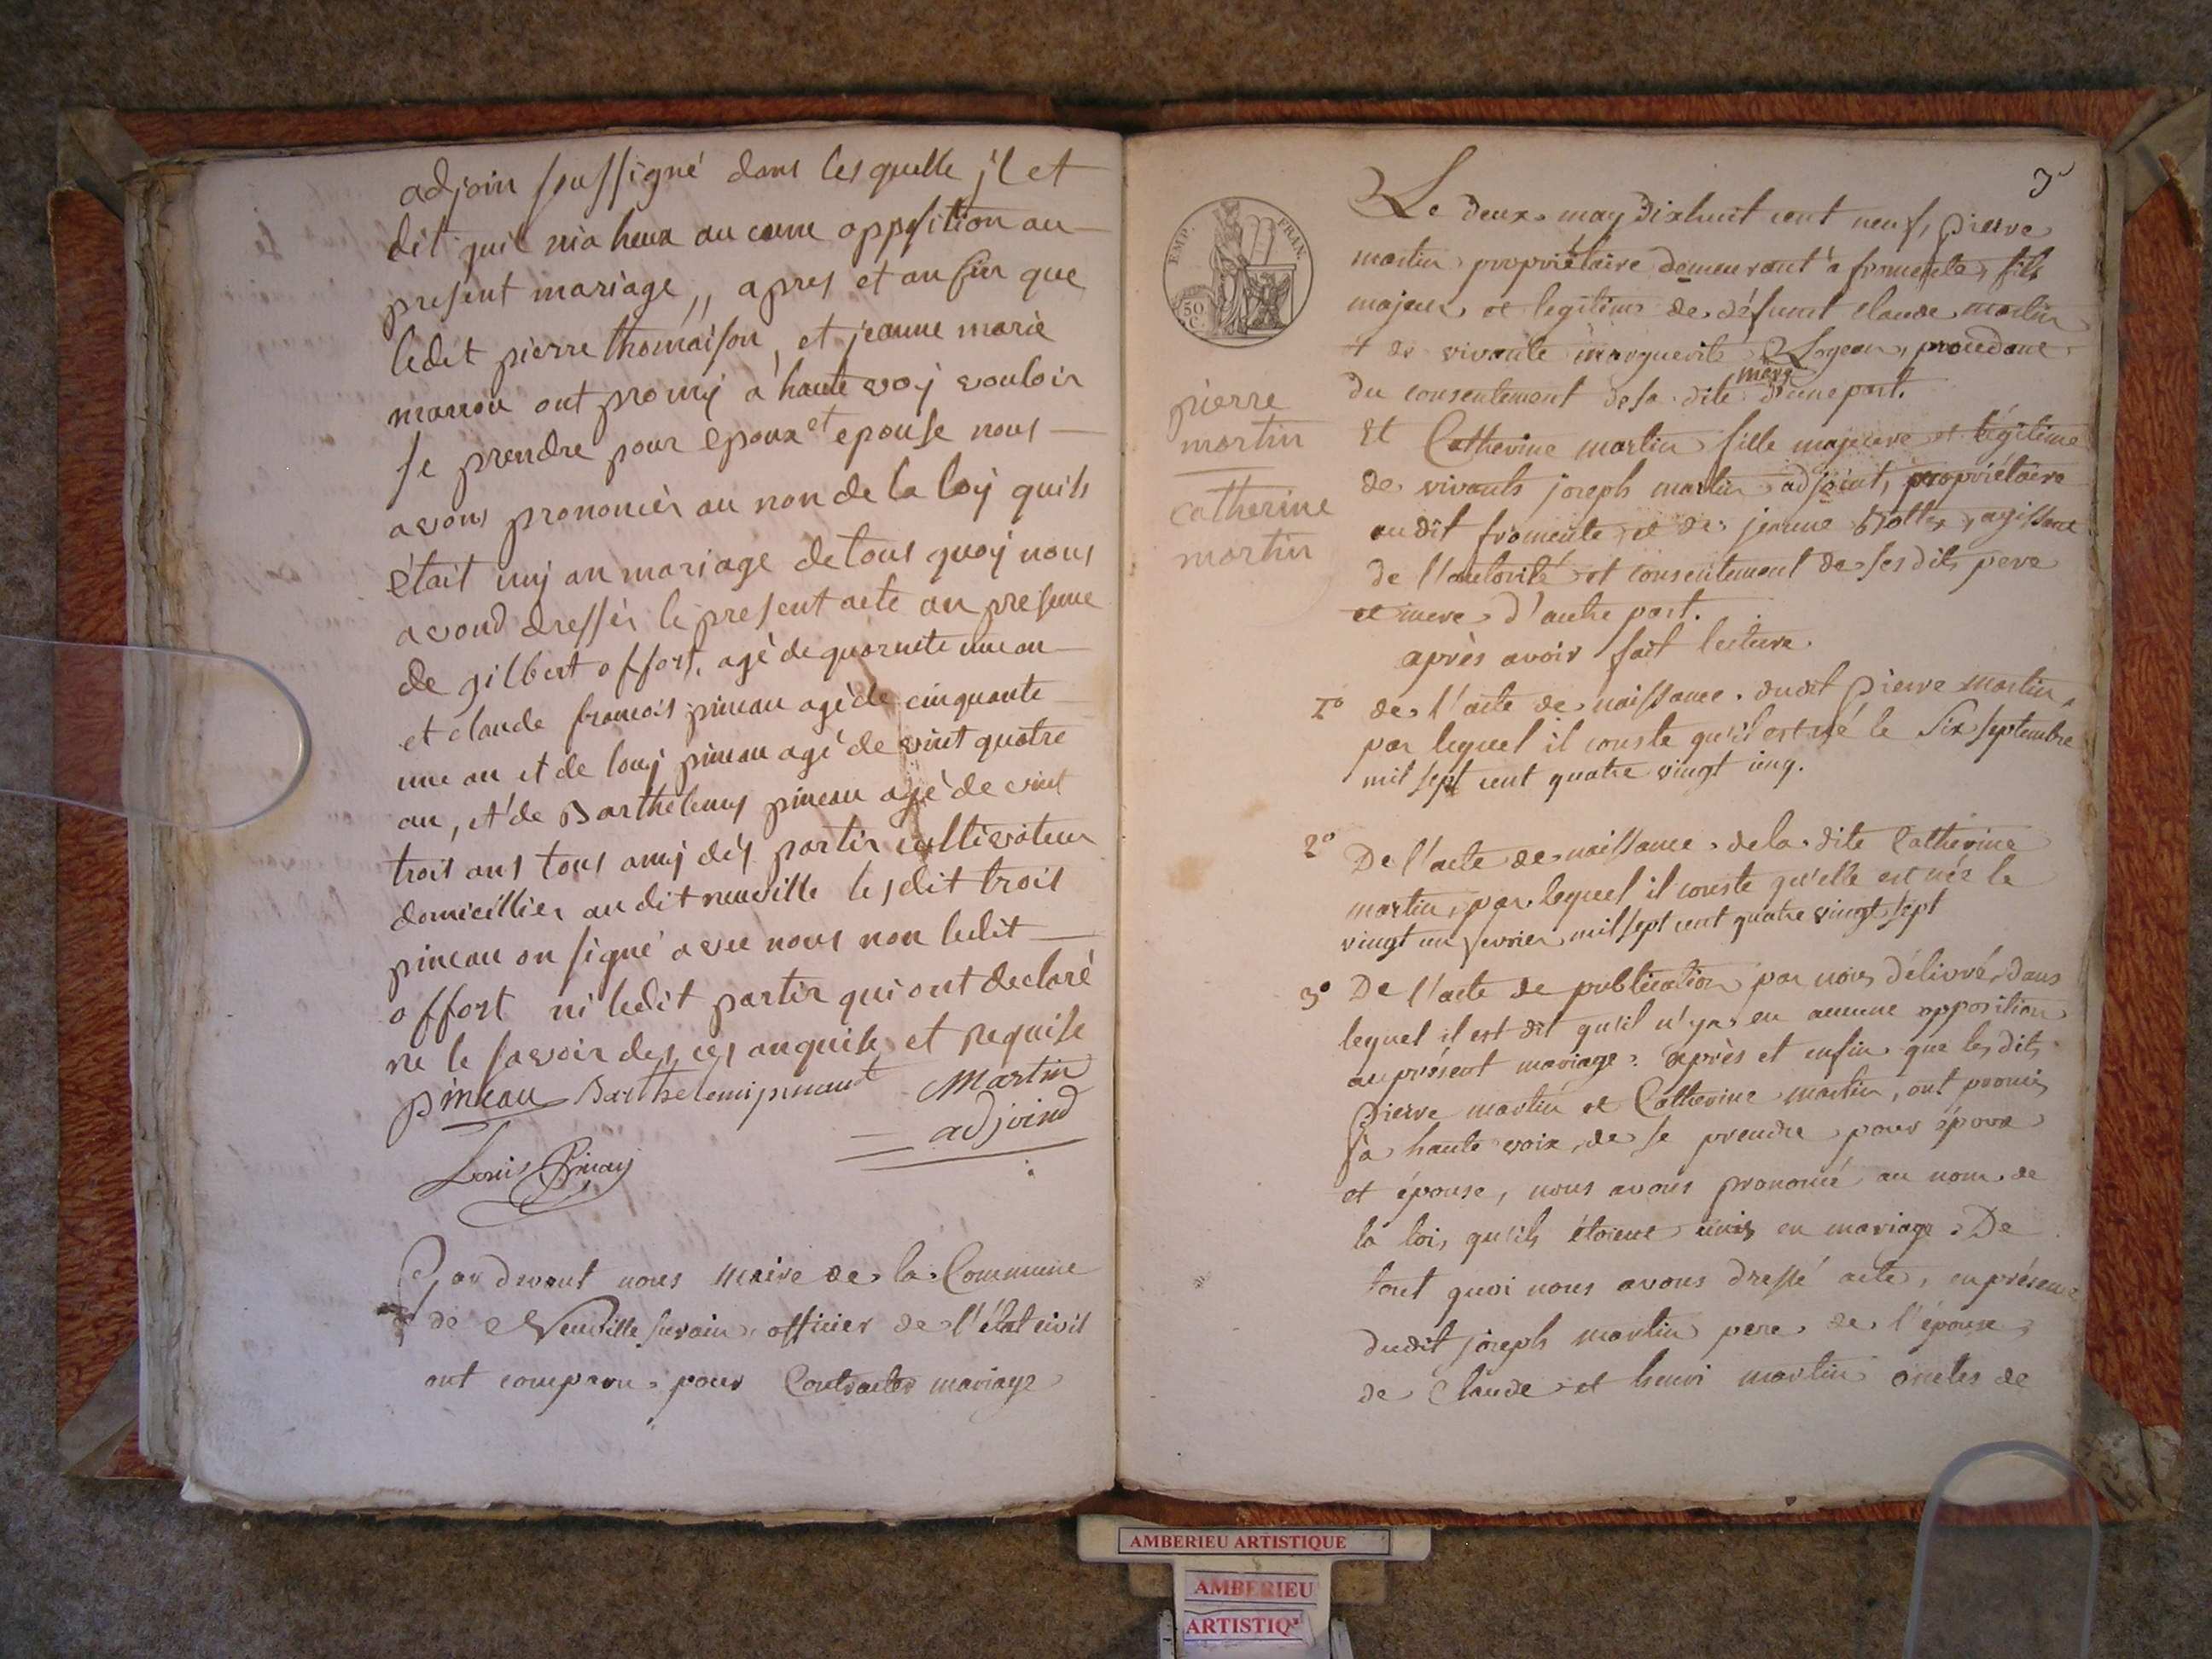 adjoin soussigné dans lesquelle jl et
dit quil nia heux au cune oppsition au
present mariage,, apres et anfin que
ledit pierre thomaison, et jeanne marie
marrou ont promij a haute voj vouloir
se prendre pour epoux et epouse nous
avons prononcér au non de la loy quils
était unj an mariage de tous quoy nous
avond dresser le present acte an presence
de gilbert offort, agé de quarente une an
et claude francois pineau agé de cinquante
une an et de louj pineau agé de vint quatre
an, et de Barthelemy pineau agé de vint
trois ans tous amij dés partir cultivateur
domicillier au dit neuville lesdit trois
pineau on signé avec nous non ledit
offort ni ledit partir qui ont declaré
ne le savoir des ces anquise et requise
pineau Barthelemi pinaud Martin
adjoind
Louis Pinay
Par devant nous Maire de la Commune
de Neuville surain, officier de l'état civil
ont comparu pour Contracter mariage
3
EMP. FRAN.
50 C.
Le deux may dixhuit cent neuf, pierre
martin propriétaire demeurant à fromente, fils
majeur et legitime de défunt Claude martin
+ de vivante marguerite Logeon, procedant
du consentement de sa dite mere d'une part.
pierre
martin
catherine
martin
Et Catherine martin fille majeure et légitime
de vivants joseph martin adjoint, propriétaire
audit fromente et de jeanne Bottex, agissant
de l'autorité et consentement de ses dits pere
et mere d'autre part.
après avoir fait lecture
1° de l'acte de naissance dudit Pierre martin,
par lequel il conste qu'il est né le Six septembre
mil sept cent quatre vingt cinq.
2° De l'acte de naissance de la dite Catherine
martin, par lequel il conste qu'elle est née le
vingt un fevrier mil sept cent quatre vingt sept
3° De l'acte de publication par nous délivré, dans
lequel il est dit qu'il n'ya eu aucune opposition
au présent mariage: après et enfin que les dits
Pierre martin et Catherine martin, ont promis
à haute voix, de se prendre pour époux
et épouse, nous avons prononcé au nom de
la loi, qu'ils étoient unis en mariage. De
tout quoi nous avons dressé acte, en présence
dudit joseph martin pere de l'épouse,
de Claude et henri martin oncles de
AMBERIEU ARTISTIQUE
AMBERIEU
ARTISTIQ